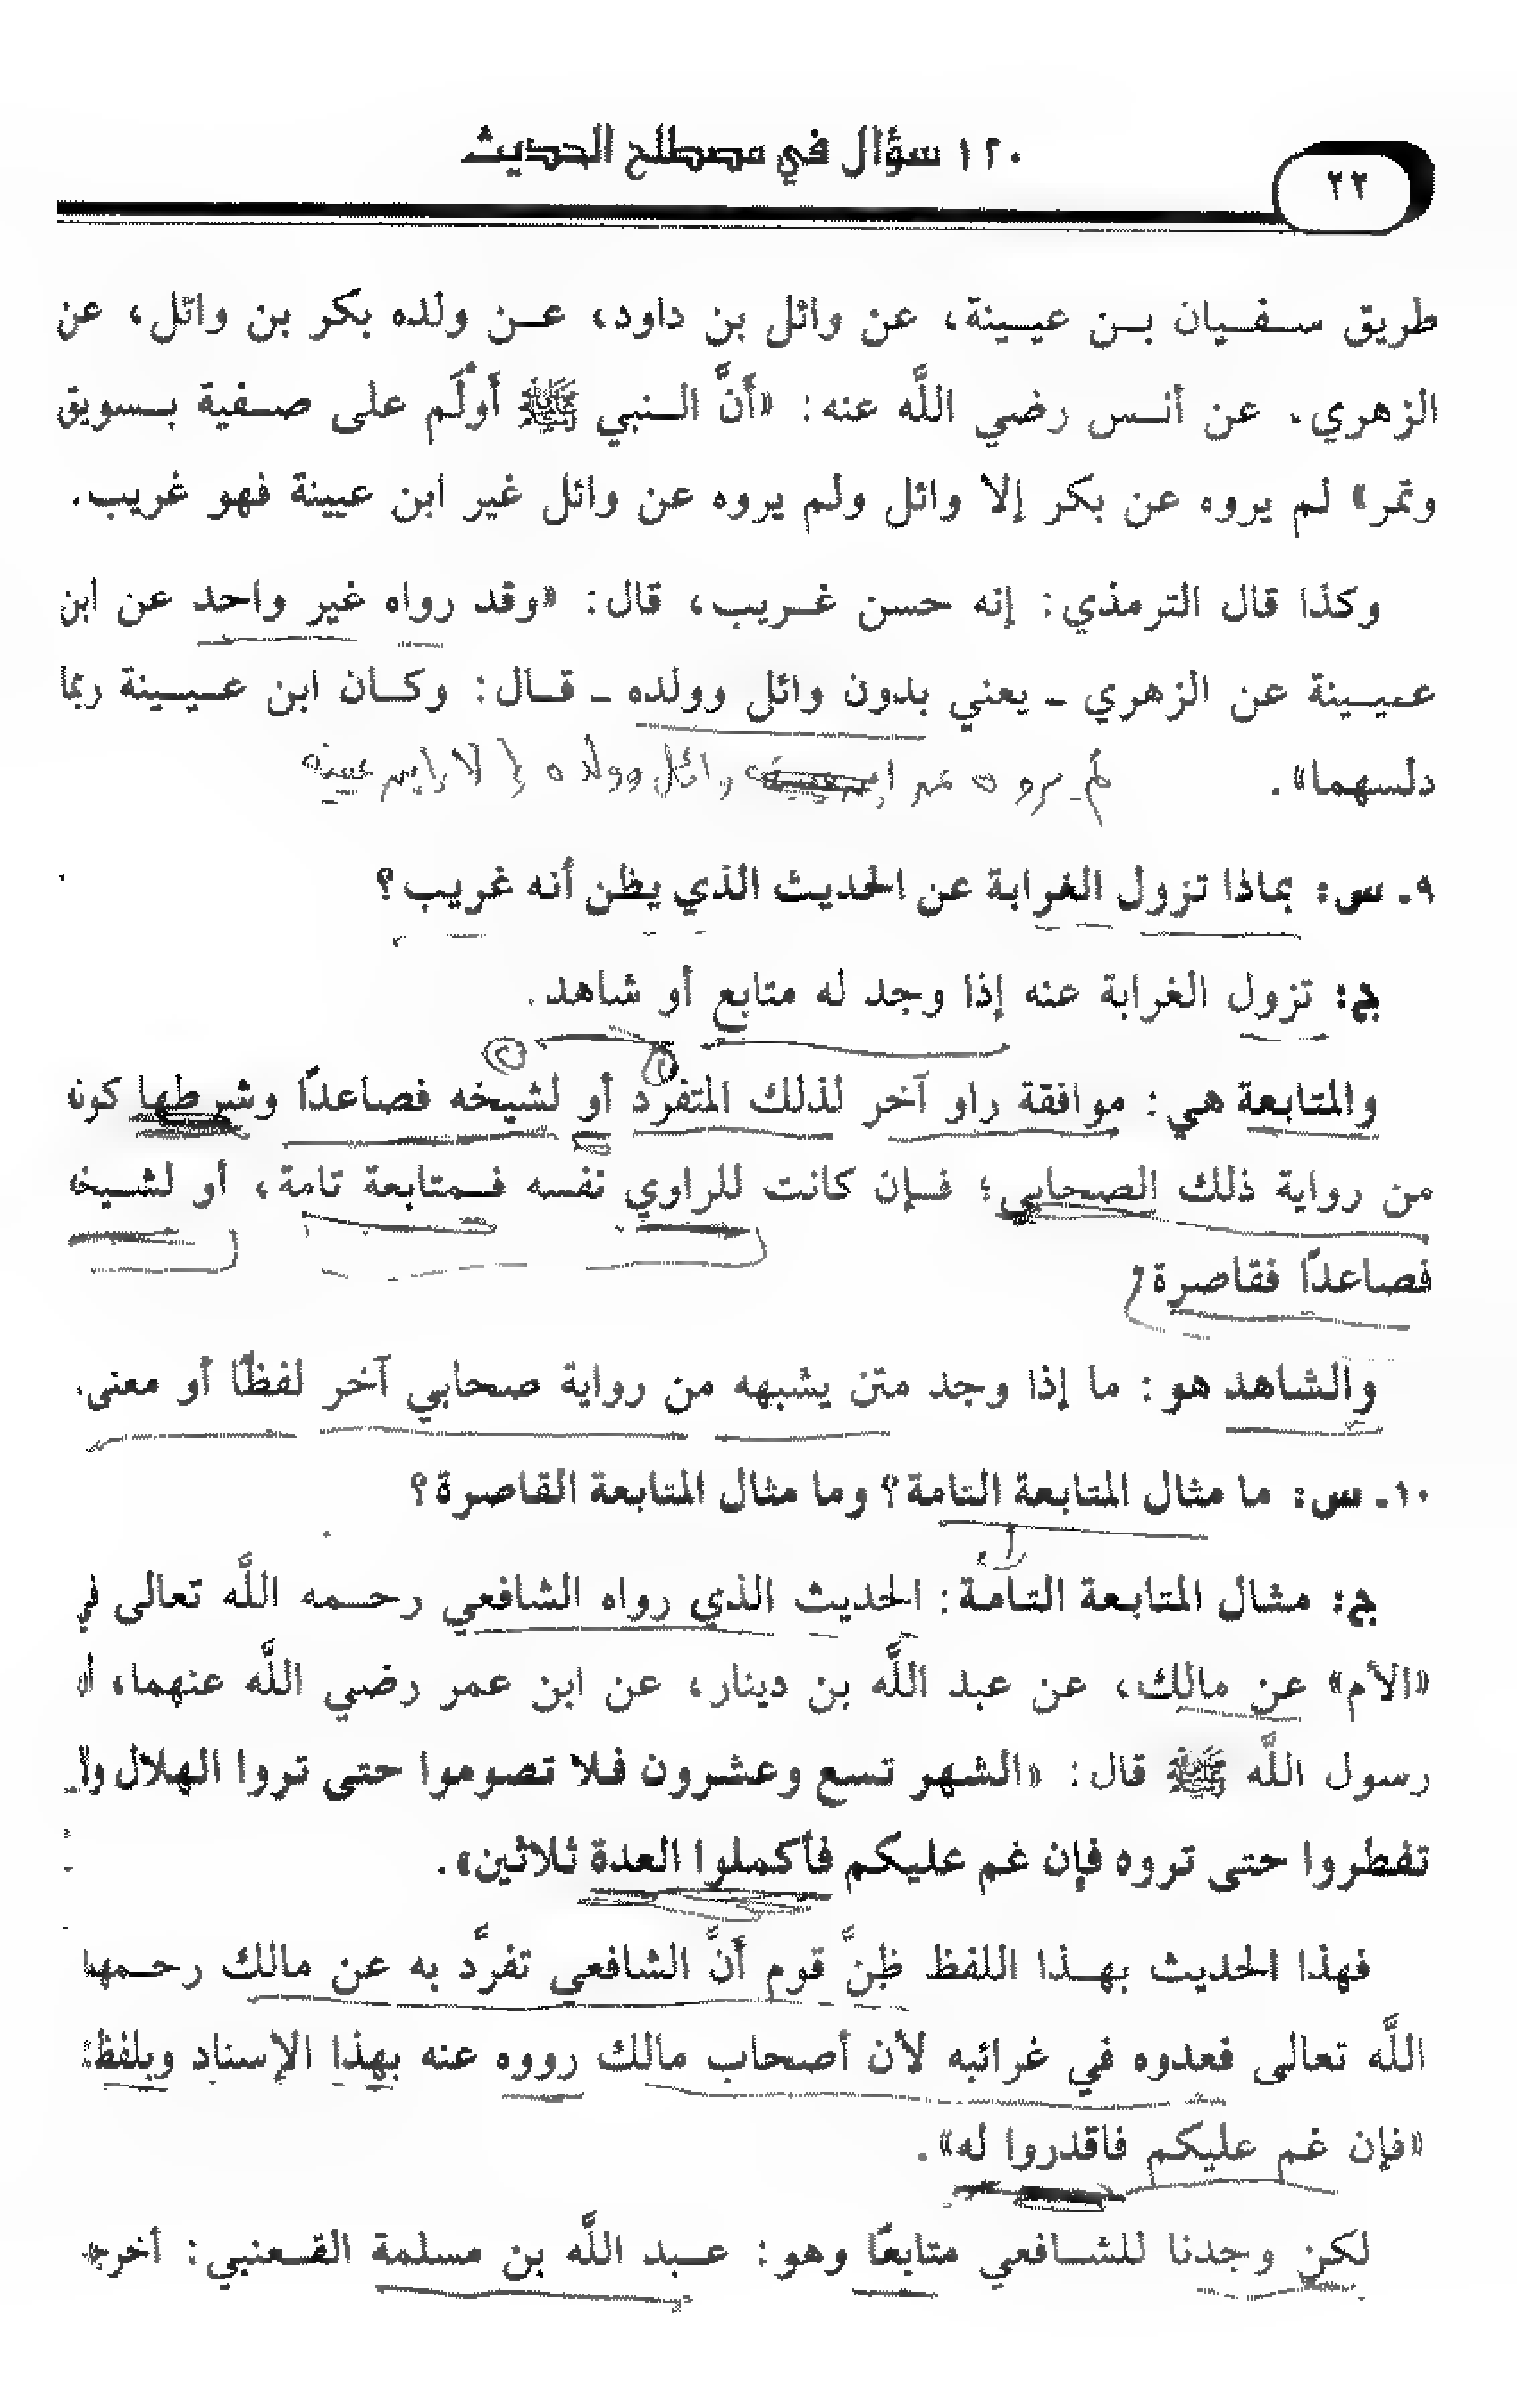 ١٢٠ سؤال في مصطلح الحديث
٢٢
طريق سفيان بن عيينة، عن وائل بن داود، عن ولده بكر بن وائل، عن
الزهري. عن أنس رضي اللَّه عنه: «أَنَّ النبي ﷺ أَوْلَم على صفية بسويق
وتمر» لم يروه عن بكر إلا وائل ولم يروه عن وائل غير ابن عيينة فهو غريب.
وكذا قال الترمذي: إنه حسن غريب، قال: «وقد رواه غير واحد عن ابن
عيينة عن الزهري ـ يعني بدون وائل وولده ـ قال: وكان ابن عيينة ربما
دلسهما».
لم يروه عن وائل وولده إلا ابن عيينة
٩ـ س: بماذا تزول الغرابة عن الحديث الذي يظن أنه غريب؟
ج: تزول الغرابة عنه إذا وجد له متابع أو شاهد.
والمتابعة هي: موافقة راو آخر لذلك المتفرد أو لشيخه فصاعدًا وشرطها كونه
من رواية ذلك الصحابي؛ فإن كانت للراوي نفسه فمتابعة تامة، أو لشيخه
فصاعدًا فقاصرة
والشاهد هو: ما إذا وجد متن يشبهه من رواية صحابي آخر لفظًا أو معنى.
١٠ـ س: ما مثال المتابعة التامة؟ وما مثال المتابعة القاصرة؟
ج: مثال المتابعة التامة: الحديث الذي رواه الشافعي رحمه اللَّه تعالى في
«الأم» عن مالك، عن عبد اللَّه بن دينار، عن ابن عمر رضي اللَّه عنهما،
رسول اللَّه ﷺ قال: «الشهر تسع وعشرون فلا تصوموا حتى تروا الهلال ولا
تفطروا حتى تروه فإن غم عليكم فأكملوا العدة ثلاثين».
فهذا الحديث بهذا اللفظ ظنَّ قوم أَنَّ الشافعي تفرَّد به عن مالك رحمهما
اللَّه تعالى فعدوه في غرائبه لأن أصحاب مالك رووه عنه بهذا الإسناد وبلفظ:
«فإن غم عليكم فاقدروا له».
لكن وجدنا للشافعي متابعًا وهو: عبد اللَّه بن مسلمة القعنبي: أخرجه